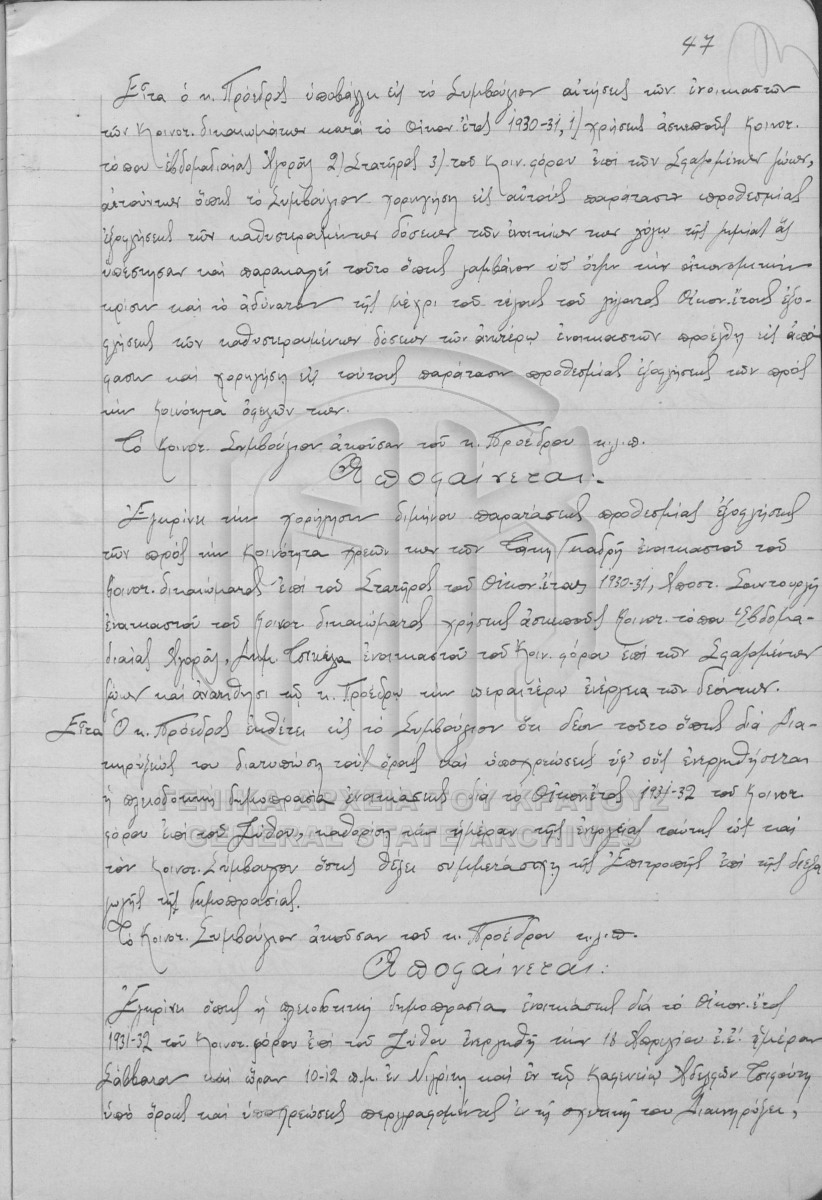 47
Εἶτα ὁ κ. Πρόεδρος ὑποβάλλει εἰς τὸ Συμβούλιον αἰτήσεις τῶν ἐνοικιαστῶν
τῶν Κοινοτ. δικαιωμάτων κατὰ τὸ Οἰκον. ἔτος 1930-31, 1) χρήσεως ἀσκεποῦς Κοινοτ.
τόπου ἑβδομαδιαίας Ἀγορᾶς 2) Στατῆρος 3) τοῦ Κοιν. φόρου ἐπὶ τῶν Σφαζομένων ζώων,
αἰτούντων ὅπως τὸ Συμβούλιον χορηγήσῃ εἰς αὐτοὺς παράτασιν προθεσμίας
ἐξοφλήσεως τῶν καθυστερουμένων δόσεων τῶν ἐνοικίων των λόγῳ τῆς ζημίας ἃς
ὑπέστησαν καὶ παρακαλεῖ τοῦτο ὅπως λαμβάνον ὑπ' ὄψιν τὴν οἰκονομικὴν
κρίσιν καὶ τὸ ἀδύνατον τῆς μέχρι τοῦ τέλους τοῦ λήγοντος Οἰκον. ἔτους ἐξο-
φλήσεως τῶν καθυστερουμένων δόσεων τῶν ἀνωτέρω ἐνοικιαστῶν προέλθῃ εἰς ἀπό
φασιν καὶ χορηγήσῃ εἰς τούτους παράτασιν προθεσμίας ἐξοφλήσεως τῶν πρὸς
τὴν Κοινότητα ὀφειλῶν των.
Τὸ Κοινοτ. Συμβούλιον ἀκοῦσαν τοῦ κ. Προέδρου κ.λ.π.
Ἀποφαίνεται:-
Ἐγκρίνει τὴν χορήγησιν διμήνου παρατάσεως προθεσμίας ἐξοφλήσεως
τῶν πρὸς τὴν Κοινότητα χρεῶν των τῶν ἐνοικιαστοῦ τοῦ
Κοινοτ. δικαιώματος ἐπὶ τοῦ Στατῆρος τοῦ Οἰκον. ἔτους 1930-31, Ἀποστ.
ἐνοικιαστοῦ τοῦ Κοινοτ. δικαιώματος χρήσεως ἀσκεποῦς Κοινοτ. τόπου Ἑβδομα-
διαίας Ἀγορᾶς, Δημ. Τσικέλα ἐνοικιαστοῦ τοῦ Κοιν. φόρου ἐπὶ τῶν Σφαζομένων
ζώων καὶ ἀνατίθησι τῷ κ. Προέδρῳ τὴν περαιτέρω ἐνέργειαν τῶν δεόντων.
Εἶτα Ὁ κ. Πρόεδρος ἐκθέτει εἰς τὸ Συμβούλιον ὅτι δέον τοῦτο ὅπως διὰ Δια-
κηρύξεώς του διατυπώσῃ τοὺς ὅρους καὶ ὑποχρεώσεις ὑφ' οὓς ἐνεργηθήσεται
ἡ πλειοδοτικὴ δημοπρασία ἐνοικιάσεως διὰ τὸ Οἰκον. ἔτος 1931-32 τοῦ Κοινοτ.
φόρου ἐπὶ τοῦ Ζύθου, καθορίσῃ τὴν ἡμέραν τῆς ἐνεργείας ταύτης ὡς καὶ
τὸν Κοινοτ. Σύμβουλον ὅστις θέλει συμμετάσχῃ τῆς Ἐπιτροπῆς ἐπὶ τῆς διεξα
γωγῆς τῆς δημοπρασίας.
Τὸ Κοινοτ. Συμβούλιον ἀκοῦσαν τοῦ κ. Προέδρου κ.λ.π.
Ἀποφαίνεται:
Ἐγκρίνει ὅπως ἡ πλειοδοτικὴ δημοπρασία ἐνοικιάσεως διὰ τὸ Οἰκον. ἔτος
1931-32 τοῦ Κοινοτ. φόρου ἐπὶ τοῦ Ζύθου ἐνεργηθῇ τὴν 18 Ἀπριλίου ἐ.ἔ. ἡμέραν
Σάββατον καὶ ὥραν 10-12 π.μ. ἐν Νιγρίτῃ καὶ ἐν τῷ Καφενείῳ Ἀδελφῶν
ὑπὸ ὅρους καὶ ὑποχρεώσεις περιγραφομένας ἐν τῇ σχετικῇ του Διακηρύξει,
ΓΕΝΙΚΑ ΑΡΧΕΙΑ ΤΟΥ ΚΡΑΤΟΥΣ
GENERAL STATE ARCHIVES